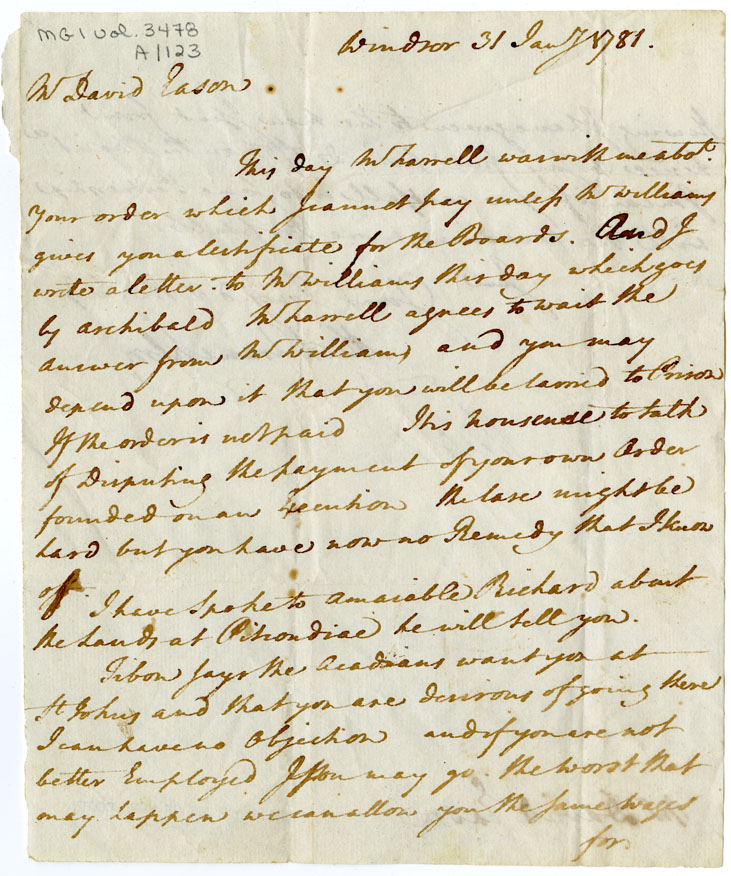 MG1 Vol. 3478
A/123
Windsor 31 Jany 1781.
Mr David Eason
This day Mr harrell was with me abot.
Your order which I cannot pay unless Mr Williams
gives you a certificate for the Boards. And I
write a letter to Mr Williams this day which goes
by archibald Mr harrell agrees to wait the
answer from Mr Williams and you may
depend upon it that you will be carried to Prison
If the order is not paid It is nonsence to talk
of Disputing the payment of your own Order
founded on an Execution the Case might be
hard but you have now no Remedy that I know
of. I have spoke to amaiable Richard about
the lands at Piticondiac he will tell you.
says the Acadians want you at
St Johns and that you are desirous of going there
I can have no Objection and if you are not
better Employed you may go. the worst that
may happen we can allow you the same wages
for